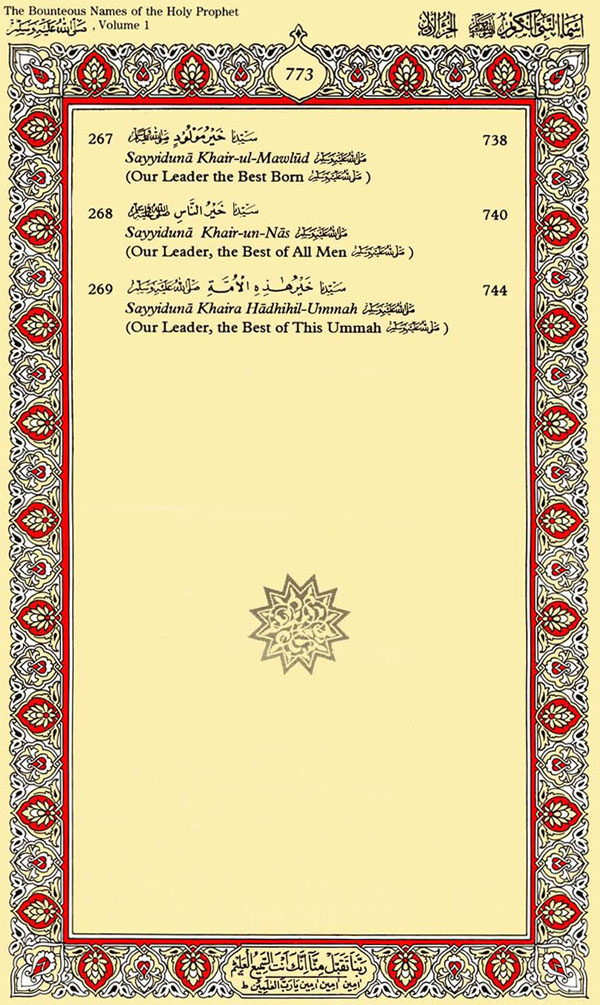 The Bounteous Names of the Holy Prophet
ﷺ, Volume 1
اسماء النبی الکریم ﷺ الجزء الاول
773
267 سَيِّدُنَا خَيْرُ مَوْلُودٍ ﷺ 738
Sayyidunā Khair-ul-Mawlūd ﷺ
(Our Leader the Best Born ﷺ )
268 سَيِّدُنَا خَيْرُ النَّاسِ ﷺ 740
Sayyidunā Khair-un-Nās ﷺ
(Our Leader, the Best of All Men ﷺ )
269 سَيِّدُنَا خَيْرُ هٰذِهِ الْاُمَّةِ ﷺ 744
Sayyidunā Khaira Hādhihil-Ummah ﷺ
(Our Leader, the Best of This Ummah ﷺ )
رَبَّنَا تَقَبَّلْ مِنَّا اِنَّكَ اَنْتَ السَّمِيعُ الْعَلِيمُ
اٰمِين اٰمِين اٰمِين يَا رَبَّ الْعٰلَمِيْنَ ط